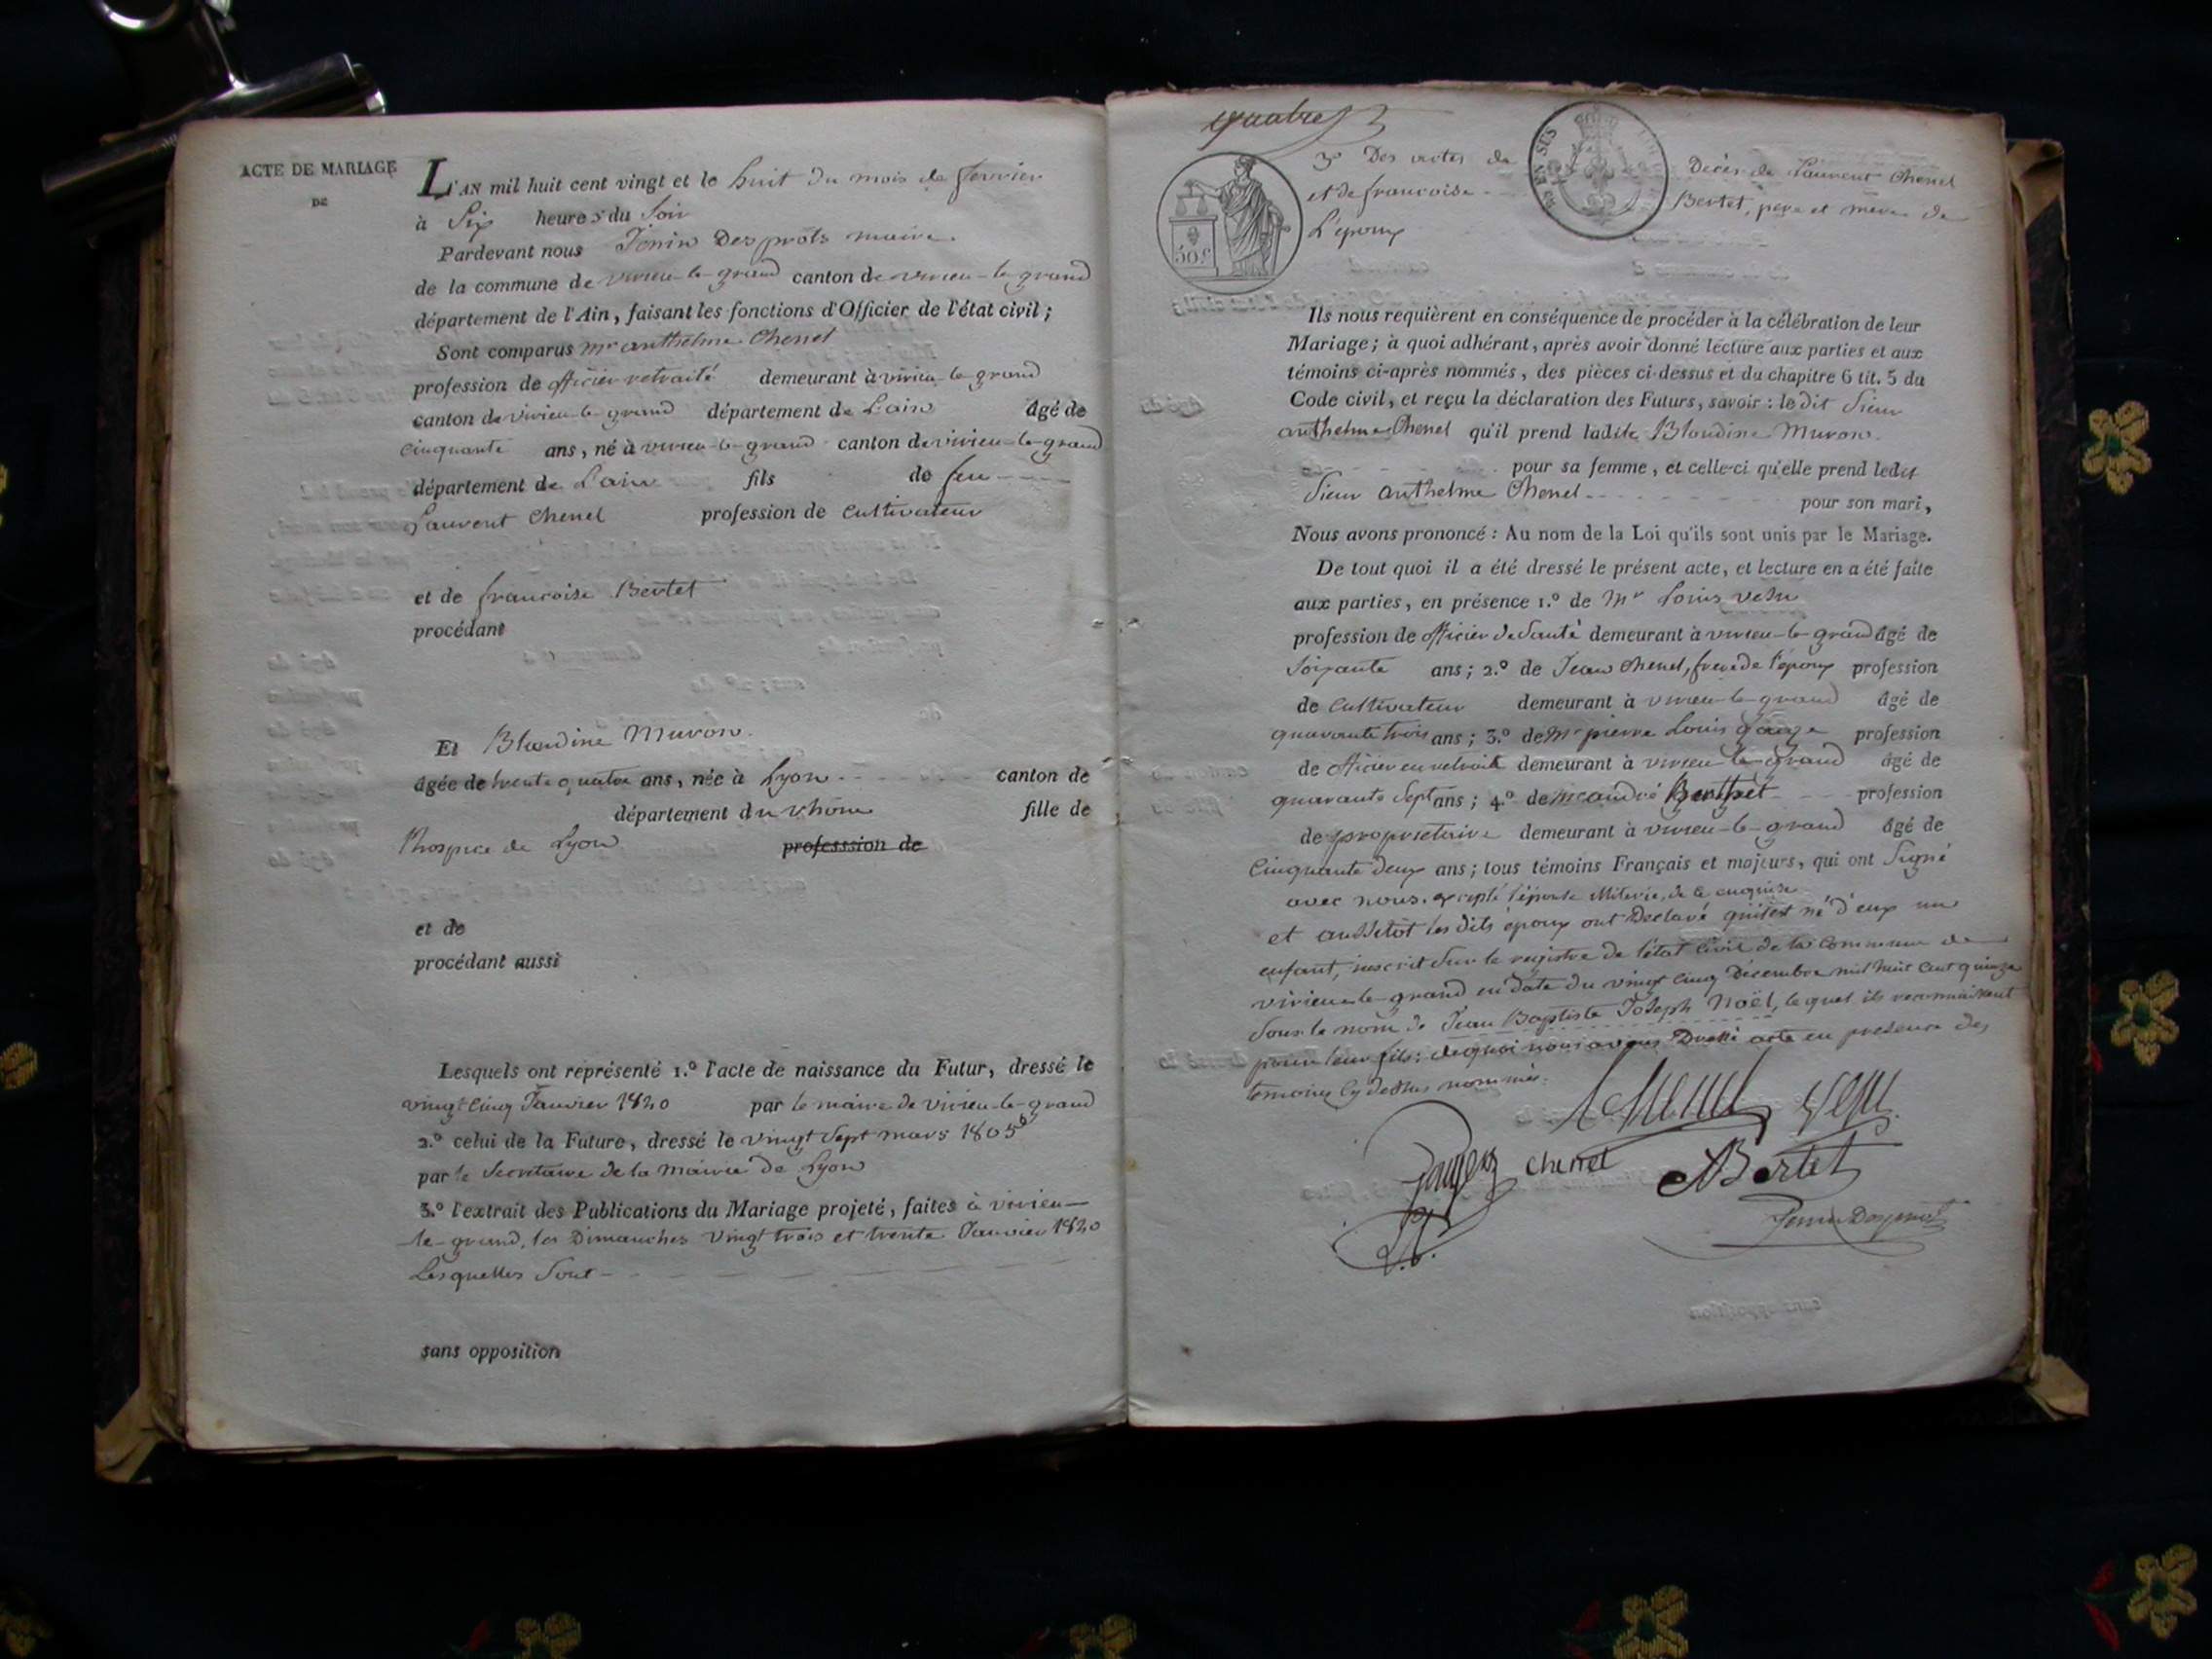 ACTE DE MARIAGE
DE
L'AN mil huit cent vingt et le huit du mois de fevrier
à Six heures du Soir
Pardevant nous Jenin Desprots maire.
de la commune de virieu-le-grand canton de virieu-le-grand
département de l'Ain, faisant les fonctions d'Officier de l'état civil;
Sont comparus Mr anthelme Chenel
profession de officier retraité demeurant à virieu-le-grand
canton de virieu-le-grand département de Lain âgé de
cinquante ans, né à virieu-le-grand canton de virieu-le-grand
département de Lain fils de feu
Laurent Chenel profession de cultivateur
et de francoise Bertet
procédant
Et Blandine Muron.
âgée de trente quatre ans, née à Lyon canton de
département du rhône fille de
l'hospice de Lyon professsion de
et de
procédant aussi
Lesquels ont représenté 1.º l'acte de naissance du Futur, dressé le
vingt cinq Janvier 1820 par le maire de virieu-le-grand
2.º celui de la Future, dressé le vingt Sept mars 1805
par le Secretaire de la mairie de Lyon
3.º l'extrait des Publications du Mariage projeté, faites à virieu-
le-grand, les Dimanches vingt trois et trente Janvier 1820
Lesquelles Sont
sans opposition
quatre
3º Des actes de Décès de Laurent Chenel
et de francoise Bertet, père et mere de
L'époux
EN SUS
50 c
Ils nous requièrent en conséquence de procéder à la célébration de leur
Mariage; à quoi adhérant, après avoir donné lecture aux parties et aux
témoins ci-après nommés, des pièces ci-dessus et du chapitre 6 tit. 5 du
Code civil, et reçu la déclaration des Futurs, savoir: le dit Sieur
anthelme Chenel qu'il prend ladite Blandine Muron.
pour sa femme, et celle-ci qu'elle prend ledit
Sieur anthelme Chenel pour son mari,
Nous avons prononcé: Au nom de la Loi qu'ils sont unis par le Mariage.
De tout quoi il a été dressé le présent acte, et lecture en a été faite
aux parties, en présence 1.º de Mr Louis
profession de officier de Santé demeurant à virieu-le-grand âgé de
Soixante ans; 2.º de Jean Chenel, frere de l'époux profession
de cultivateur demeurant à virieu-le-grand âgé de
quarante trois ans; 3.º de Mr pierre Louis profession
de officier en retraite demeurant à virieu-le-grand âgé de
quarante Sept ans; 4.º de Mr andré Berthet profession
de proprietaire demeurant à virieu-le-grand âgé de
Cinquante deux ans; tous témoins Français et majeurs, qui ont Signé
avec nous. excepté l'épouse illiterée, de ce enquise
et aussitôt les dits époux ont Declaré qu'il est né d'eux un
enfant, inscrit Sur le registre de l'état civil de la commune de
virieu-le-grand en date du vingt cinq Décembre mil huit cent quinze
Sous le nom de Jean Baptiste Joseph Noël, lequel ils reconnaissent
pour leur fils; de quoi nous avons Dressé acte en presence des
temoins cy dessus nommés.
AChenel
chenel ABertet